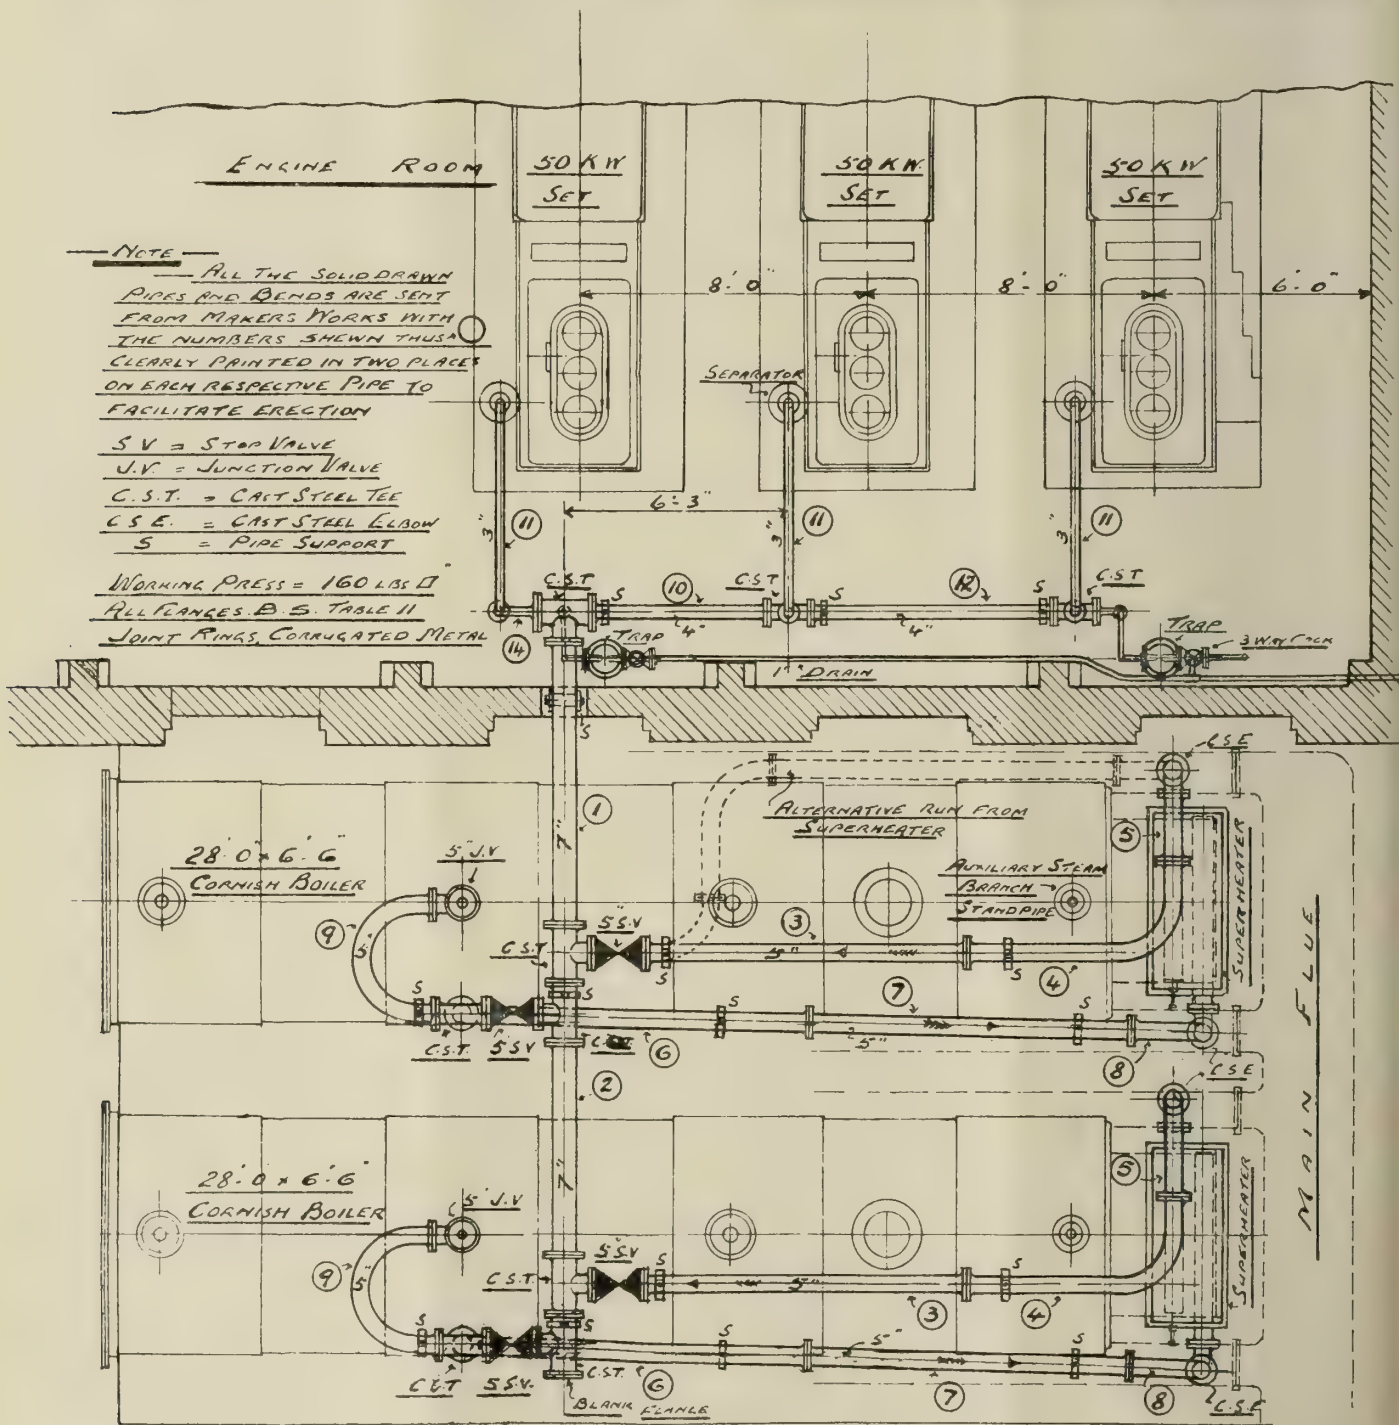 ENGINE ROOM
50 KW
SET
50 KW.
SET
50 KW
SET
NOTE
ALL THE SOLID DRAWN
PIPES AND BENDS ARE SENT
FROM MAKERS WORKS WITH
THE NUMBERS SHEWN THUS
CLEARLY PAINTED IN TWO PLACES
ON EACH RESPECTIVE PIPE TO
FACILITATE ERECTION
S V = STOP VALVE
J.V. = JUNCTION VALVE
C.S.T. = CAST STEEL TEE
C S E. = CAST STEEL ELBOW
S = PIPE SUPPORT
WORKING PRESS = 160 LBS □"
ALL FLANGES. B.S. TABLE 11
JOINT RINGS, CORRUGATED METAL
8'-0"
8'-0"
6'-0"
SEPARATOR
6'-3"
3"
11
3"
11
3"
11
C.S.T
S
10
C.S.T
S
12
S
C.S.T
4"
4"
14
TRAP
TRAP
3 WAY COCK
1" DRAIN
S
C S E
ALTERNATIVE RUN FROM
SUPERHEATER
1
7"
5
SUPERHEATER
28'-0" × 6'-6"
CORNISH BOILER
5" J.V
AUXILIARY STEAM
BRANCH
STANDPIPE
9
5"
5" S.V
C.S.T
3
5"
S
S
4
MAIN FLUE
S
S
7
S
S
C.S.T.
5 S V
C.S.T.
6
5"
8
C S E
2
7"
5
SUPERHEATER
28'-0 × 6'-6"
CORNISH BOILER
5" J.V
9
5"
5" S.V
C.S.T
S
5"
3
S
4
S
S
S
5"
S
C.S.T
5 S.V.
C.S.T.
6
7
8
C.S.E
BLANK FLANGE